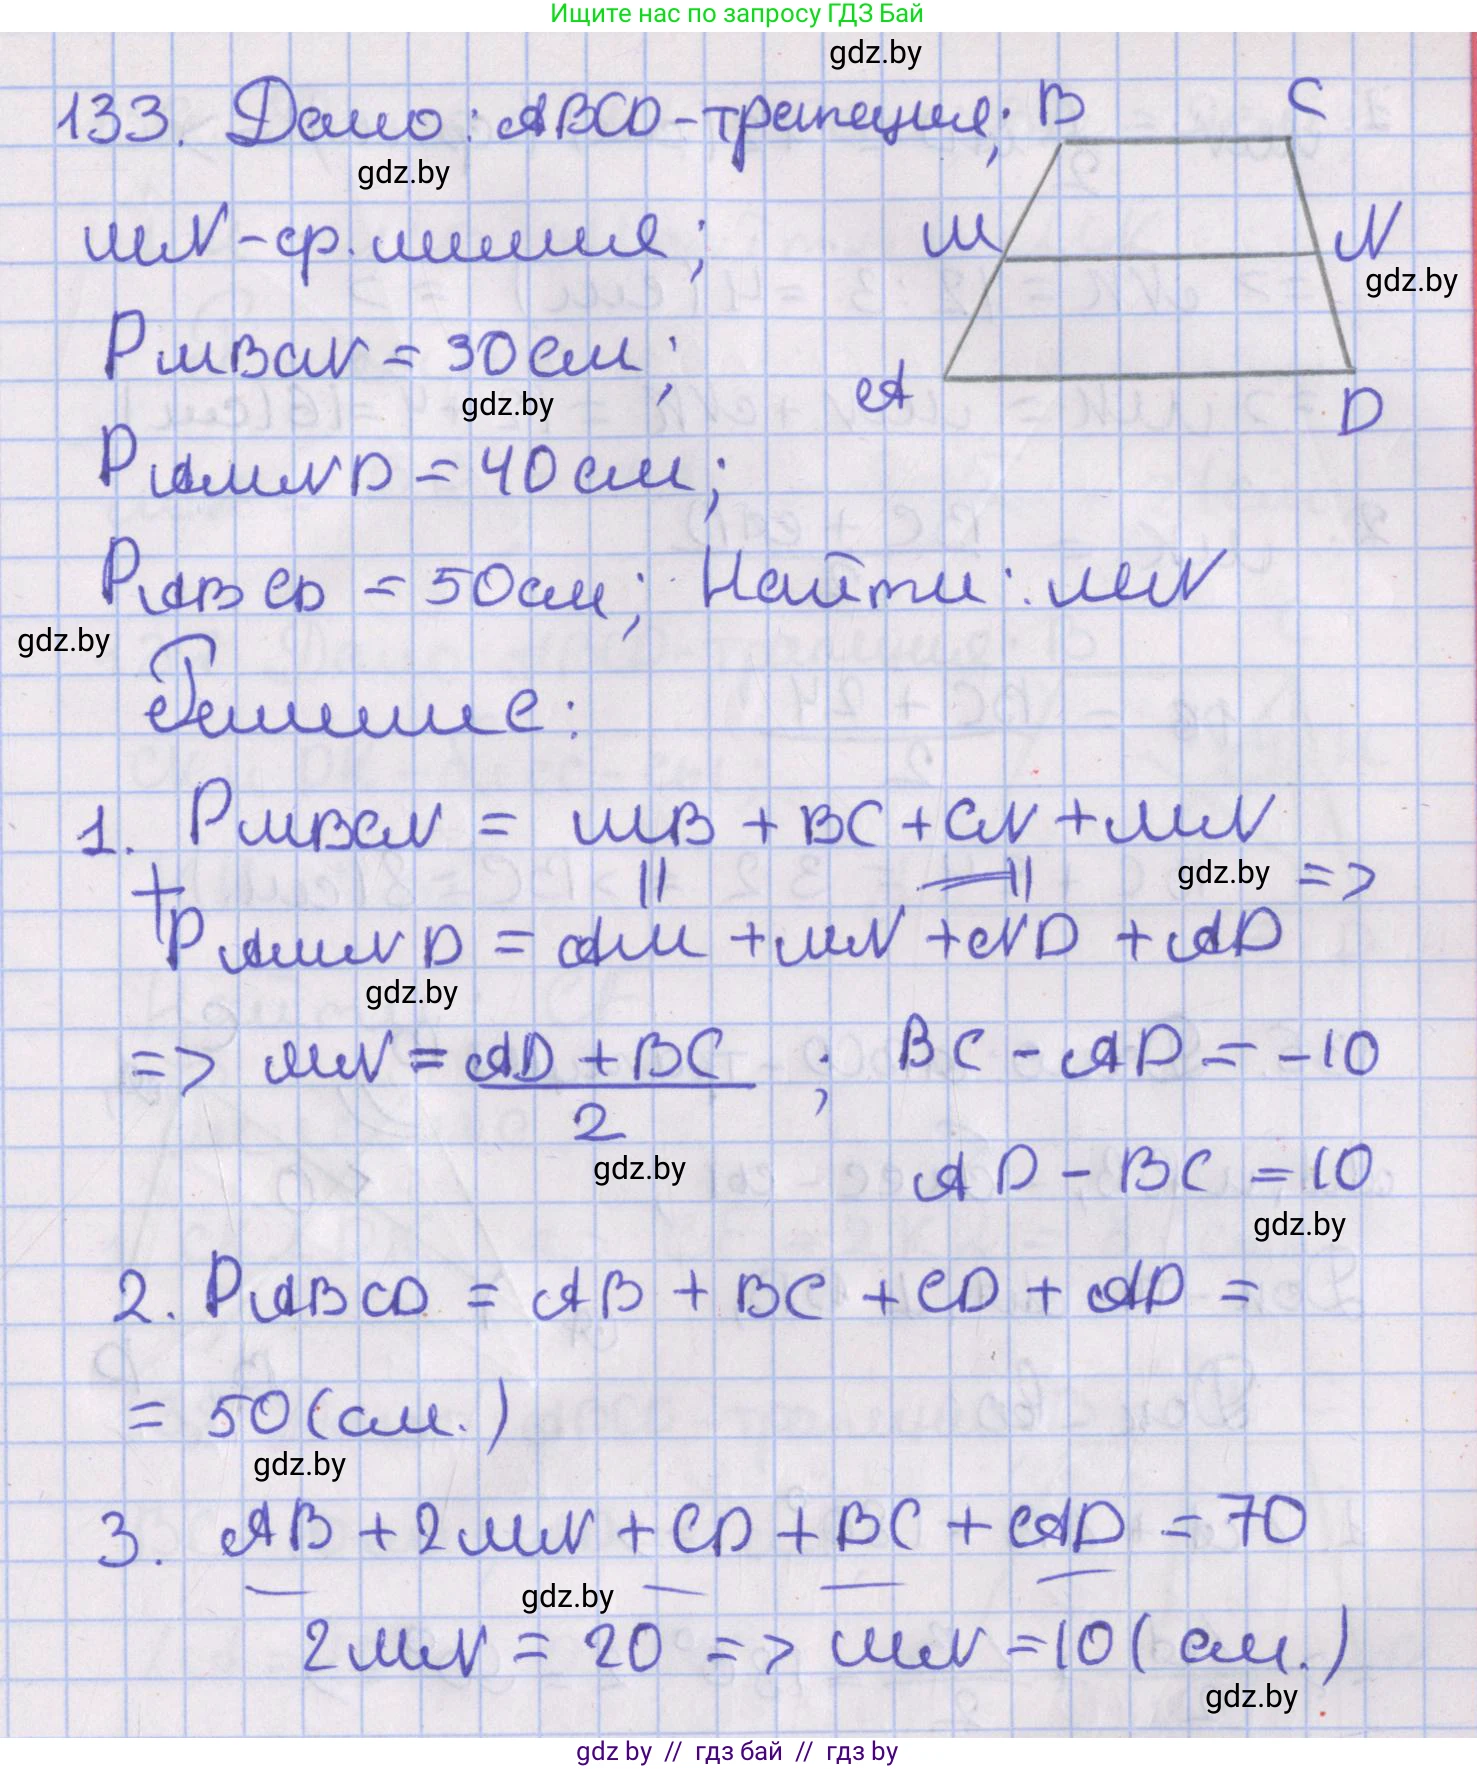 Ищите нас по запросу ГДЗ Бай
gdz.by
133. Дано: ABCD-трапеция; B C
gdz.by
MN-ср. линия; M N
gdz.by
P MBCN = 30 см;
gdz.by
A D
P AMND = 40 см;
P ABCD = 50 см; Найти: MN
gdz.by
Решение:
1. P MBCN = MB + BC + CN + MN
+ || || gdz.by =>
P AMND = AM + MN + ND + AD
gdz.by
=> MN = AD + BC / 2 ; BC - AD = -10
gdz.by
AD - BC = 10
gdz.by
2. P ABCD = AB + BC + CD + AD =
= 50 (см.)
gdz.by
3. AB + 2MN + CD + BC + AD = 70
gdz.by
2MN = 20 => MN = 10 (см.)
gdz.by
gdz by // гдз бай // гдз by